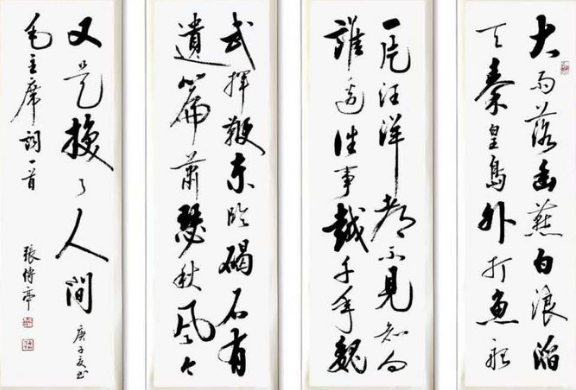 大雨落幽燕白浪滔
天秦皇島外打魚船
一片汪洋都不見知向
誰邊往事越千年魏
武揮鞭東臨碣石有
遺篇蕭瑟秋風今
又是換了人間 庚子夏书
毛主席詞一首 張傳亭